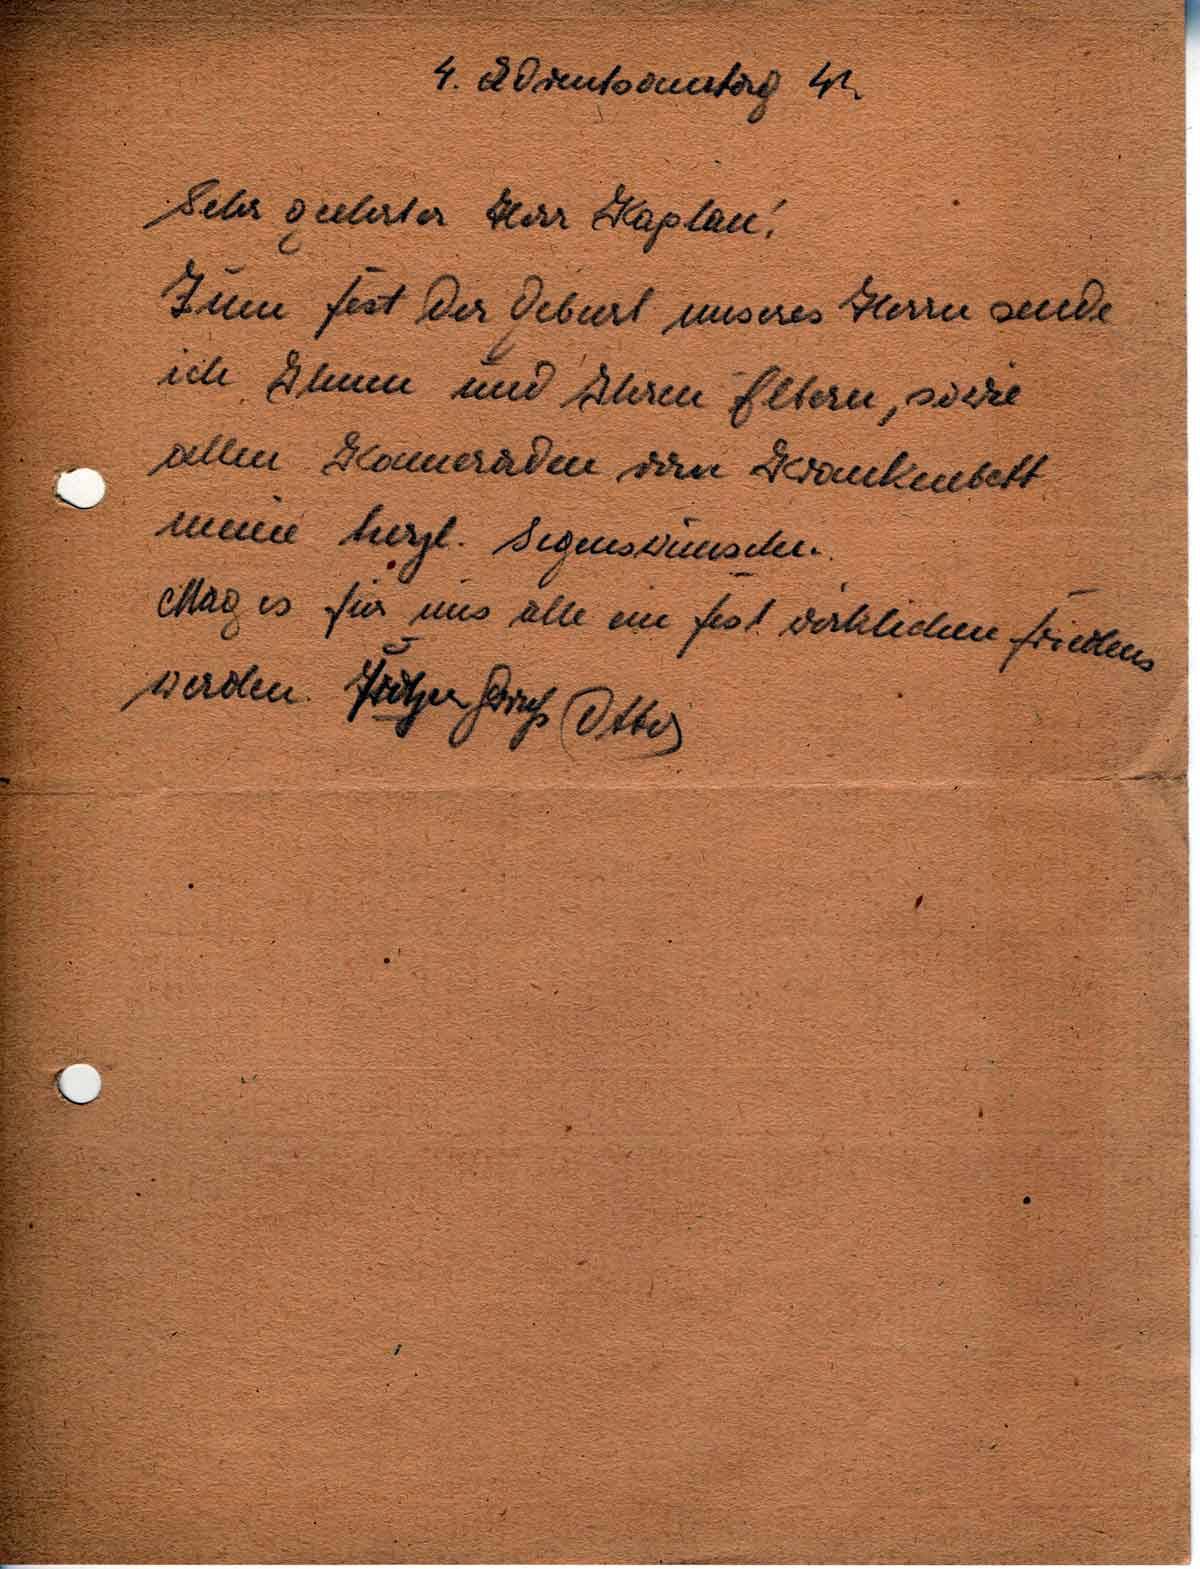 4. Adventsonntag 42
Sehr geehrter Herr Kaplan!
Zum Fest der Geburt unseres Herrn sende
ich Ihnen und Ihren Eltern, sowie
allen Kameraden im Krankenbett
meine herzl. Segenswünsche.
Mag es für uns alle ein Fest wirklichen Friedens
werden.